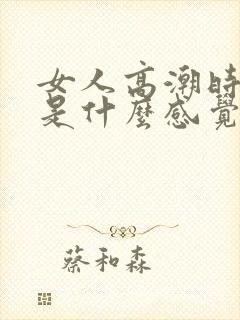 女人高潮時
是什麼感覺
蔡和森